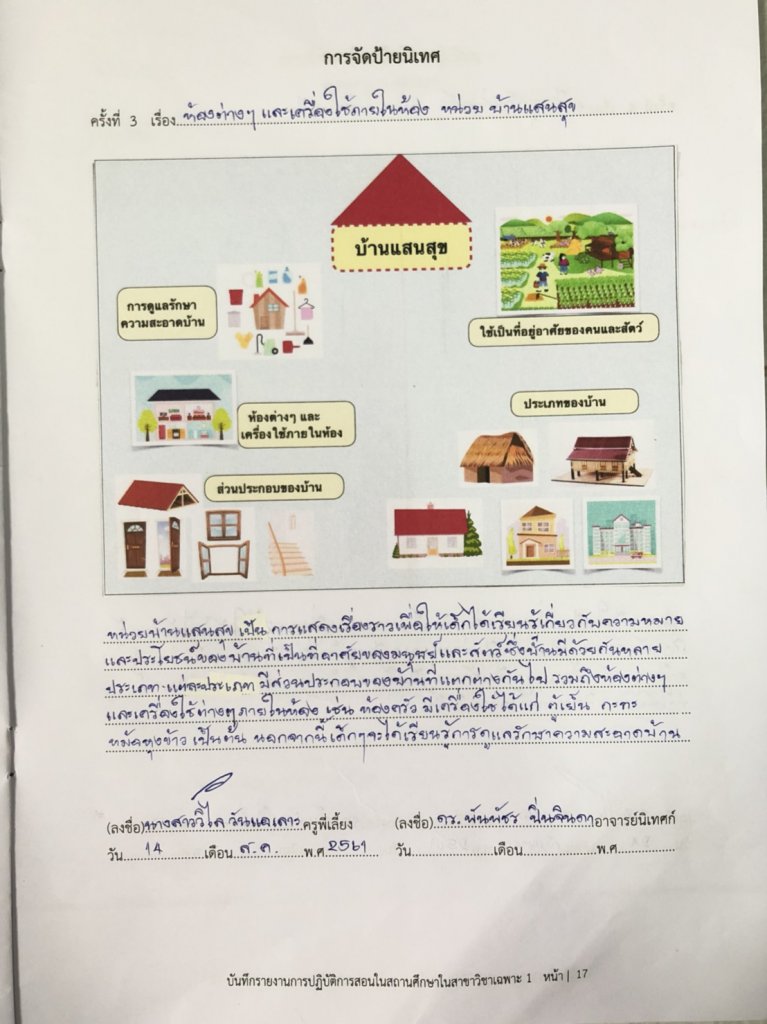 การจัดป้ายนิเทศ
ครั้งที่ 3 เรื่อง ห้องต่างๆ และเครื่องใช้ภายในห้อง หน่วย บ้านแสนสุข
บ้านแสนสุข
การดูแลรักษา
ความสะอาดบ้าน
ใช้เป็นที่อยู่อาศัยของคนและสัตว์
ห้องต่างๆ และ
เครื่องใช้ภายในห้อง
ประเภทของบ้าน
ส่วนประกอบของบ้าน
หน่วยบ้านแสนสุข เป็น การแสดงเรื่องราวเพื่อให้เด็กได้เรียนรู้เกี่ยวกับความหมาย
และประโยชน์ของบ้านที่เป็นที่อาศัยของมนุษย์และสัตว์ซึ่งบ้านมีด้วยกันหลาย
ประเภท แต่ละประเภท มีส่วนประกอบของบ้านที่แตกต่างกันไป รวมถึงห้องต่างๆ
และเครื่องใช้ต่างๆภายในห้อง เช่น ห้องครัว มีเครื่องใช้ได้แก่ ตู้เย็น กะทะ
หม้อหุงข้าว เป็นต้น นอกจากนี้เด็กๆจะได้เรียนรู้การดูแลรักษาความสะอาดบ้าน
(ลงชื่อ) นางสาววิไล ครูพี่เลี้ยง (ลงชื่อ) ดร. พันพัชร ปิ่นจินดา อาจารย์นิเทศก์
วัน 14 เดือน ส.ค. พ.ศ 2561 วัน เดือน พ.ศ.
บันทึกรายงานการปฏิบัติการสอนในสถานศึกษาในสาขาวิชาเฉพาะ 1 หน้า | 17